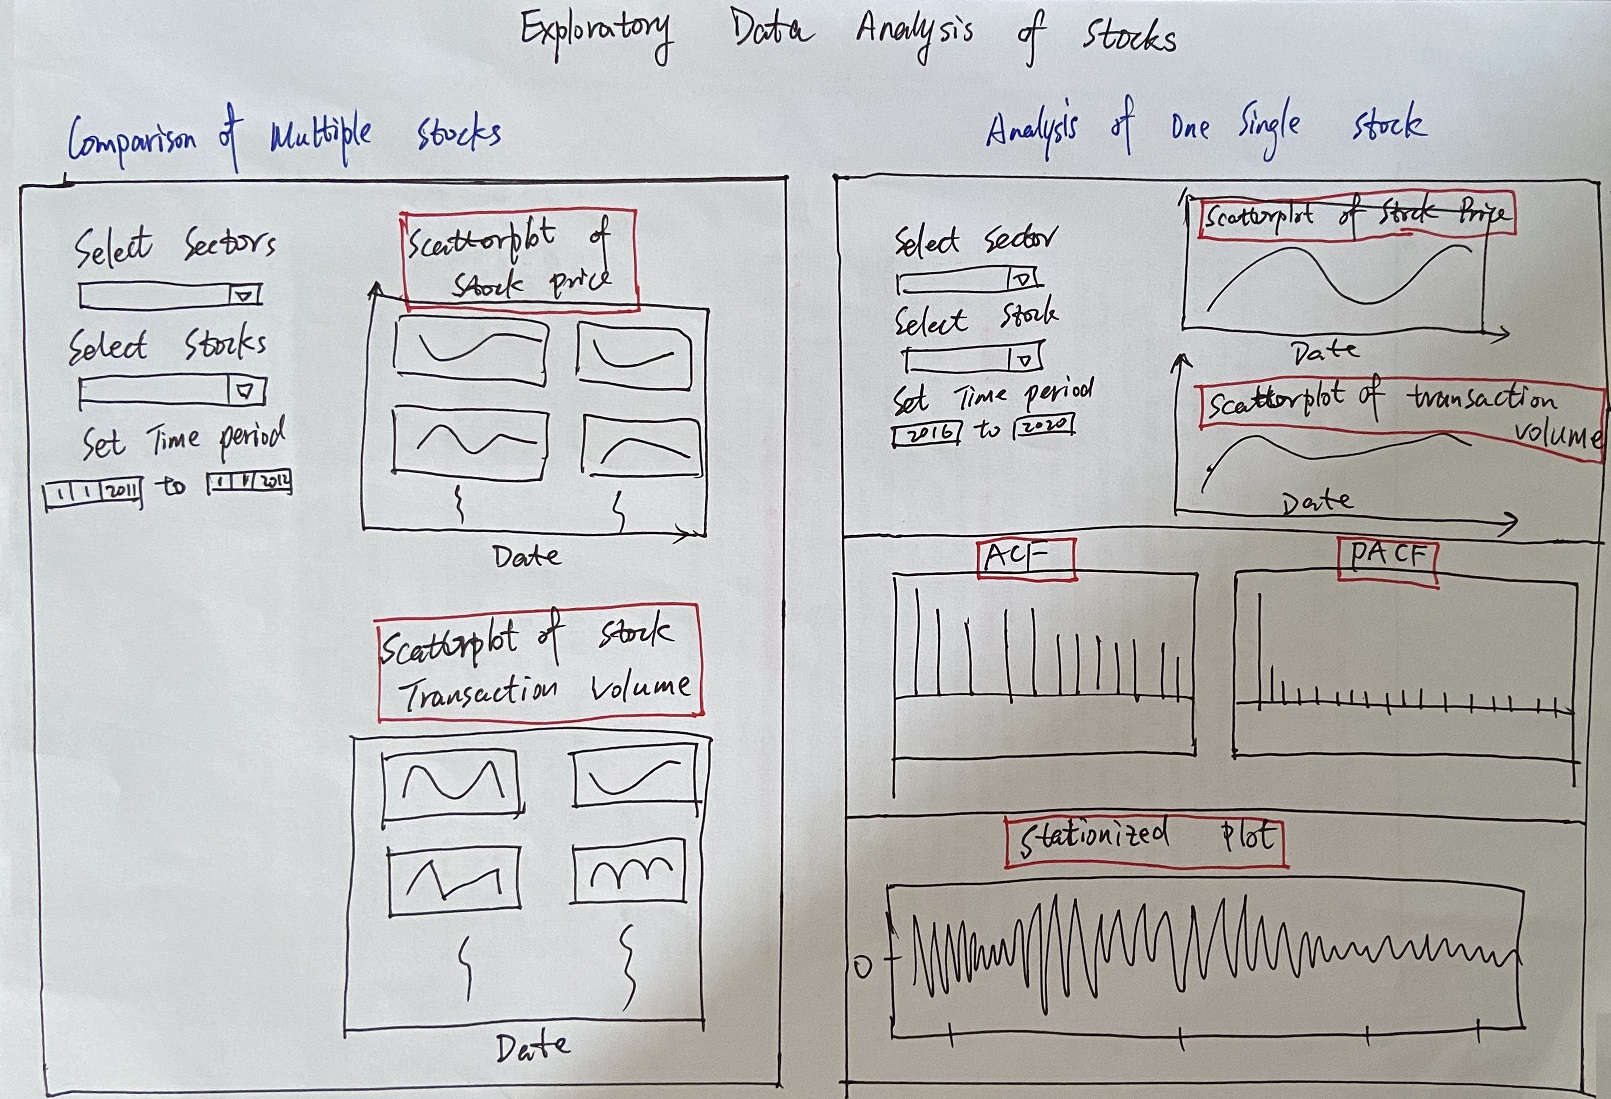 Exploratory Data Analysis of Stocks
Comparison of Multiple Stocks
Select Sectors
Select Stocks
Set Time period
1 1 2011 to 1 1 2012
Scatterplot of
Stock price
Date
Scatterplot of Stock
Transaction Volume
Date
Analysis of One Single Stock
Select Sector
Select Stock
Set Time period
2016 to 2020
Scatterplot of Stock Price
Date
Scatterplot of transaction
volume
Date
ACF
PACF
Stationized Plot
0